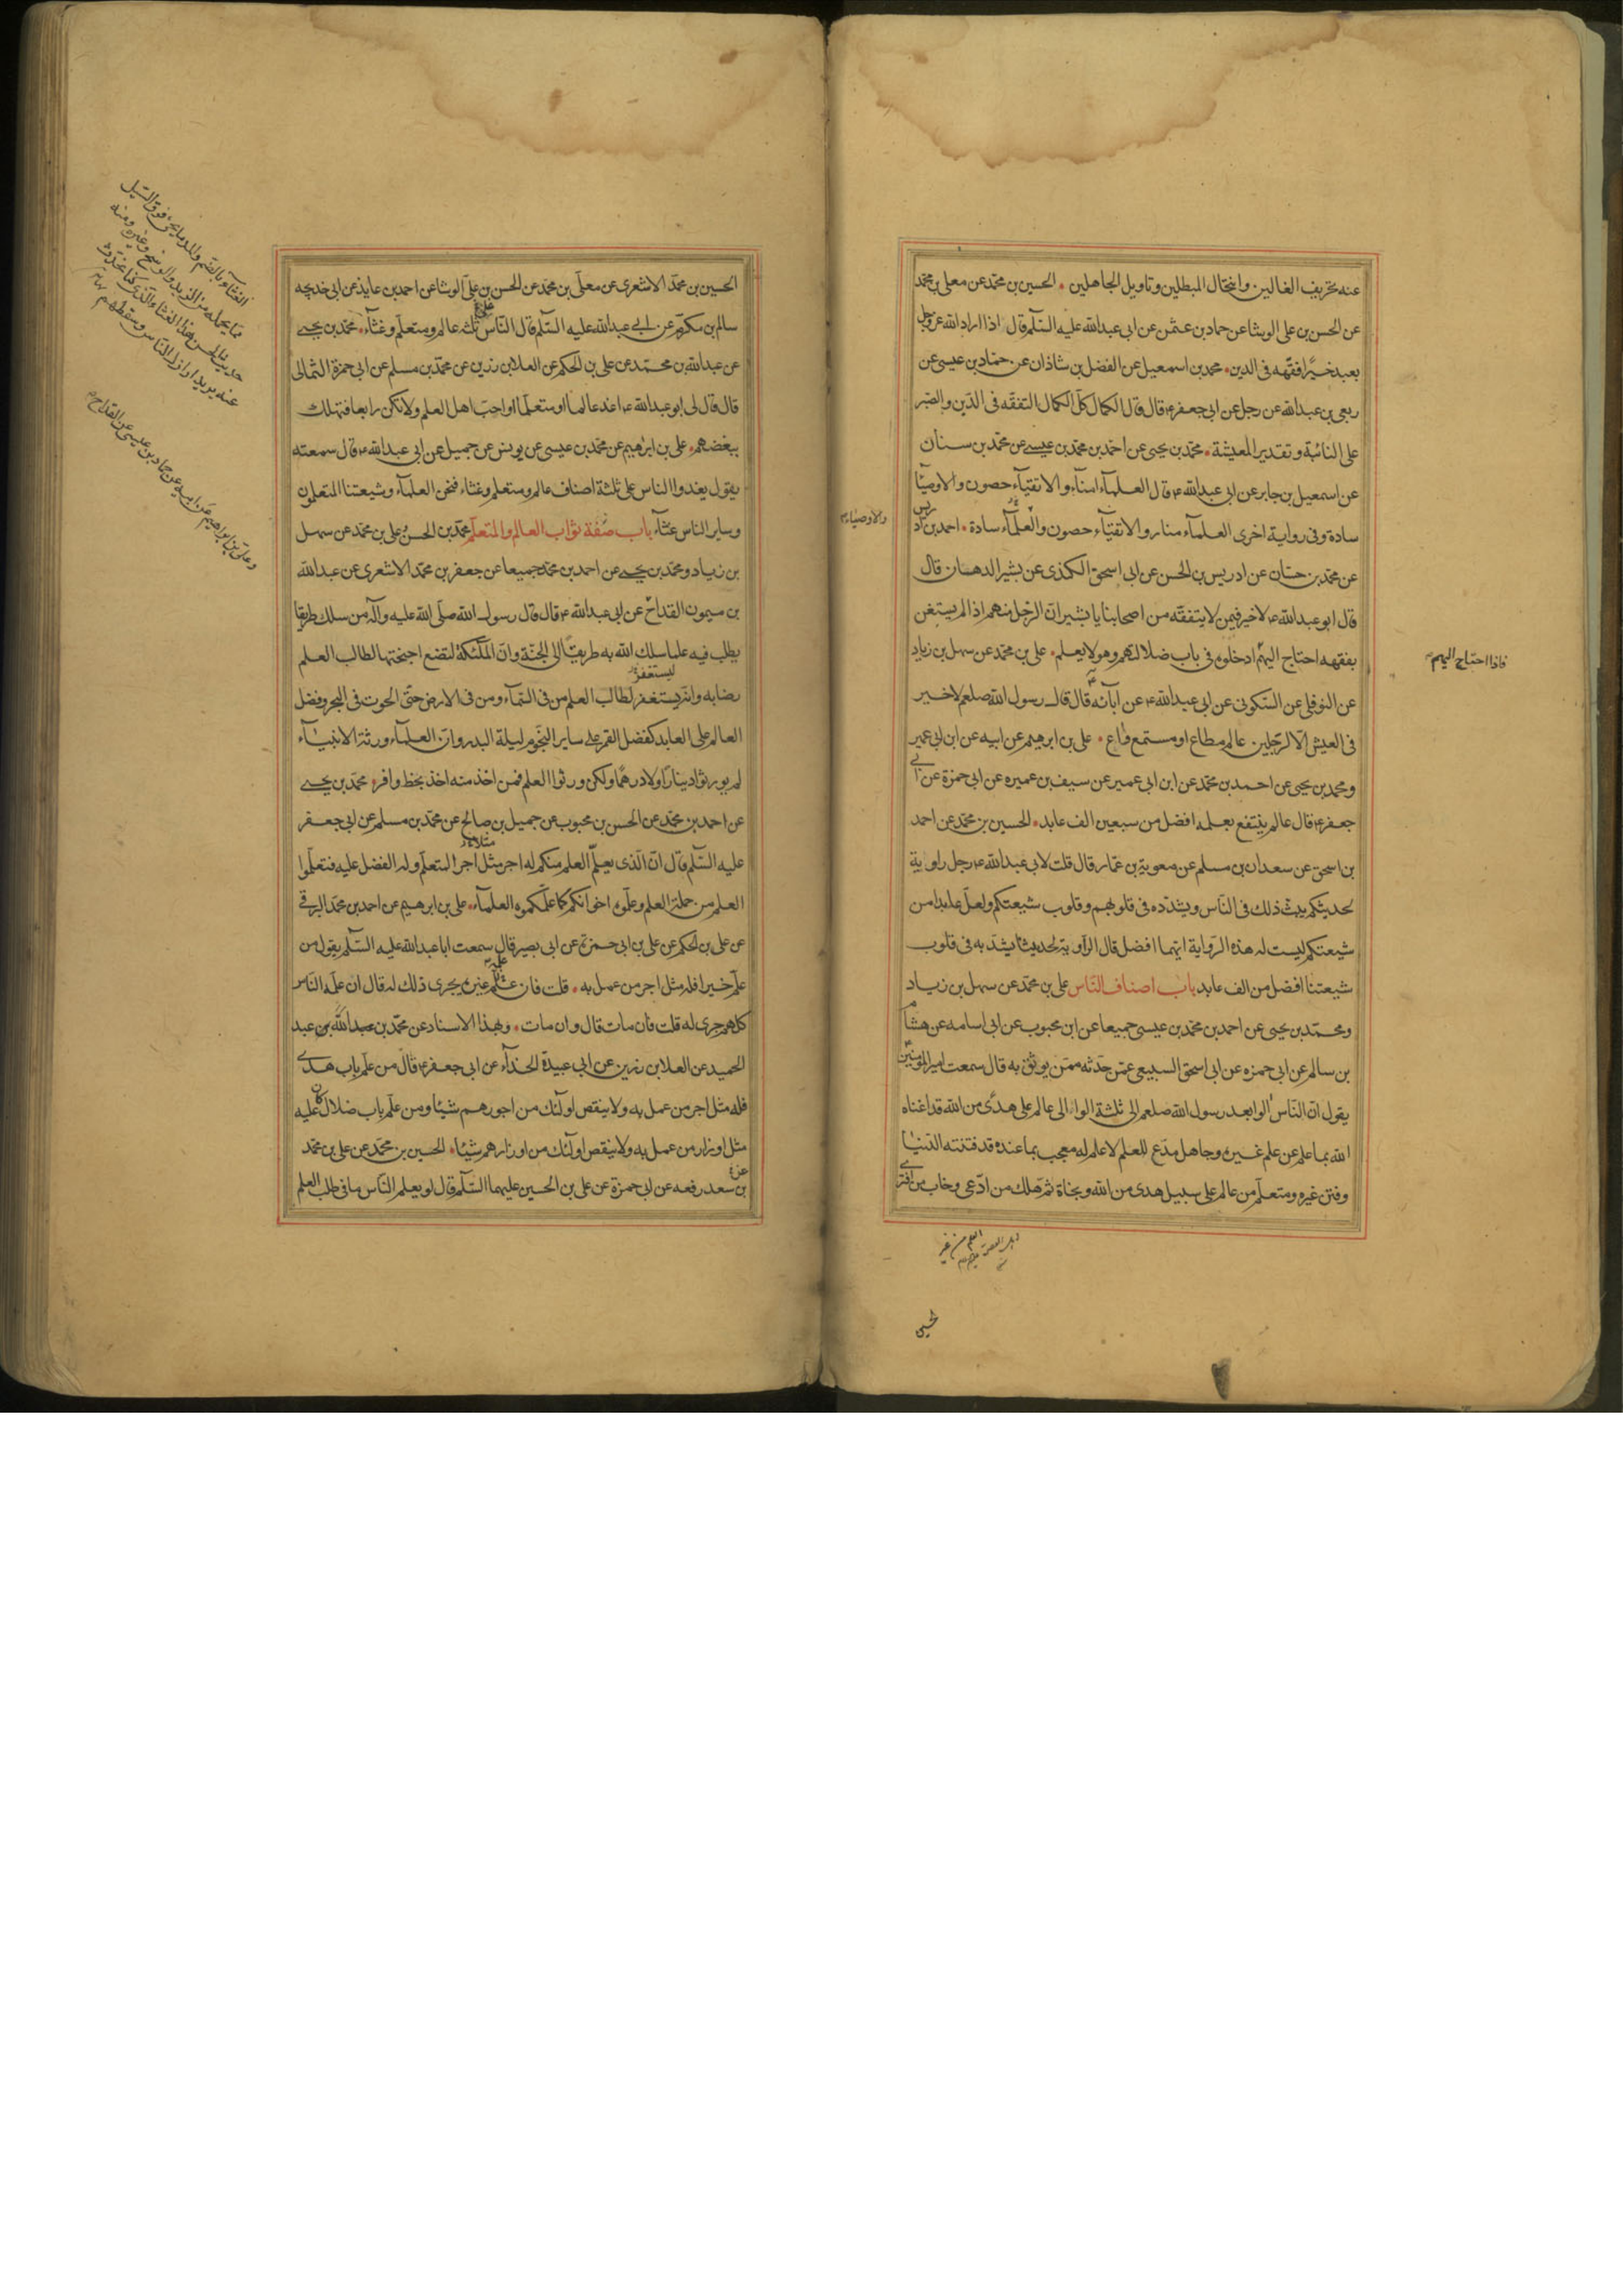 عنه تحريف الغالين وانتحال المبطلين وتاويل الجاهلين الحسين بن محمد عن معلى بن محمد
عن الحسن بن على الوشا عن حماد بن عثمن عن ابى عبدالله عليه السلم قال اذا اراد الله عز وجل
بعبد خيرا فقهه فى الدين محمد بن اسمعيل عن الفضل بن شاذان عن حماد بن عيسى عن
ربعى بن عبدالله عن رجل عن ابى جعفر ع قال قال الكمال كل الكمال التفقه فى الدين والصبر
على النائبة وتقدير المعيشة محمد بن يحيى عن احمد بن محمد بن عيسى عن محمد بن سنان
عن اسمعيل بن جابر عن ابى عبدالله ع قال العلمآء امنآء والاتقيآء حصون والاوصيآ
سادة وفى رواية اخرى العلمآء منار والاتقيآء حصون والعلمآء سادة احمد بن اد
ريس
والاوصيآء
عن محمد بن حسان عن ادريس بن الحسن عن ابى اسحق الكندى عن بشير الدهان قال
قال ابو عبدالله ع لا خير فيمن لا يتفقه من اصحابنا يا بشير ان الرجل منهم اذا لم يستغن
بفقهه احتاج اليهم ادخلوه فى باب ضلالتهم وهو لا يعلم على بن محمد عن سهل بن زياد
فاذا احتاج اليهم
عن النوفلى عن السكونى عن ابى عبدالله ع عن آبائه قال قال رسول الله صلعم لا خير
فى العيش الا لرجلين عالم مطاع او مستمع واع على بن ابرهيم عن ابيه عن ابن ابى عمير
ومحمد بن يحيى عن احمد بن محمد عن ابن ابى عمير عن سيف بن عميره عن ابى حمزة عن ابى
جعفر ع قال عالم ينتفع بعلمه افضل من سبعين الف عابد الحسين بن محمد عن احمد
بن اسحق عن سعدان بن مسلم عن معوية بن عمار قال قلت لابى عبدالله ع رجل راوية
لحديثكم يبث ذلك فى الناس ويشدده فى قلوبهم وقلوب شيعتكم ولعل عابدا من
شيعتكم ليست له هذه الرواية ايهما افضل قال الراوية لحديثنا يشد به فى قلوب
شيعتنا افضل من الف عابد باب اصناف الناس على بن محمد عن سهل بن زياد
ومحمد بن يحيى عن احمد بن محمد بن عيسى جميعا عن ابن محبوب عن ابى اسامه عن هشام
بن سالم عن ابى حمزه عن ابى اسحق السبيعى عمن حدثه ممن يوثق به قال سمعت امير المؤمنين
يقول ان الناس الوا بعد رسول الله صلعم الى ثلثة الوا الى عالم على هدى من الله قد اغناه
الله بما علم عن علم غيره وجاهل مدع للعلم لا علم له معجب بما عنده قد فتنته الدنيا
وفتن غيره ومتعلم من عالم على سبيل هدى من الله ونجاة ثم هلك من ادعى وخاب من افترى
الحسين
الحسين بن محمد الاشعرى عن معلى بن محمد عن الحسن بن على الوشا عن احمد بن عايذ عن ابى خديجه
سالم بن مكرم عن ابى عبدالله عليه السلم قال الناس ثلثه عالم ومتعلم وغثآء محمد بن يحيى
عن عبدالله بن محمد عن على بن الحكم عن العلا بن رزين عن محمد بن مسلم عن ابى حمزة الثمالى
قال قال لى ابو عبدالله ع اغد عالما او متعلما او احب اهل العلم ولا تكن رابعا فتهلك
ببغضهم على بن ابرهيم عن محمد بن عيسى عن يونس عن جميل عن ابى عبدالله ع قال سمعته
يقول يغدوا الناس على ثلثة اصناف عالم ومتعلم وغثاء فنحن العلمآء وشيعتنا المتعلمون
وساير الناس غثآء باب صفة ثواب العالم والمتعلم محمد بن الحسن وعلى بن محمد عن سهل
بن زياد ومحمد بن يحيى عن احمد بن محمد جميعا عن جعفر بن محمد الاشعرى عن عبدالله
بن ميمون القداح عن ابى عبدالله ع قال قال رسول الله صلى الله عليه وآله من سلك طريقا
يطلب فيه علما سلك الله به طريقا الى الجنة وان الملئكة لتضع اجنحتها لطالب العلم
ليستغفر
رضا به وانه يستغفر لطالب العلم من فى السمآء ومن فى الارض حتى الحوت فى البحر وفضل
العالم على العابد كفضل القمر على ساير النجوم ليلة البدر وان العلمآء ورثة الانبيآء
لم يورثوا دينارا ولا درهما ولكن ورثوا العلم فمن اخذ منه اخذ بحظ وافر محمد بن يحيى
عن احمد بن محمد عن الحسن بن محبوب عن جميل بن صالح عن محمد بن مسلم عن ابى جعفر
عليه السلم قال ان الذى يعلم العلم منكم له اجر مثل اجر المتعلم وله الفضل عليه فتعلموا
العلم من حملة العلم وعلموه اخوانكم كما علمكموه العلمآء على بن ابرهيم عن احمد بن محمد البرقى
عن على بن الحكم عن على بن ابى حمزة عن ابى بصير قال سمعت ابا عبدالله عليه السلم يقول من
علم خيرا فله مثل اجر من عمل به قلت فان علمه غيره يجرى ذلك له قال ان علمه الناس
كلهم جرى له قلت فان مات قال وان مات وبهذا الاسناد عن محمد بن عبدالله بن عبد
الحميد عن العلا بن رزين عن ابى عبيدة الحذآء عن ابى جعفر ع قال من علم باب هدى
فله مثل اجر من عمل به ولا ينقص اولئك من اجورهم شيئا ومن علم باب ضلال كان عليه
مثل اوزار من عمل به ولا ينقص اولئك من اوزارهم شيئا الحسين بن محمد عن على بن محمد
بن سعد رفعه عن ابى حمزة عن على بن الحسين عليهما السلم قال لو يعلم الناس ما فى طلب العلم
الغثآء بالضم والمد ما يجىء فوق السيل
مما يحمله من الزبد والوسخ وغيره ومنه
حديث الحسن هذا الغثاء الذى كنا نحدث
عنه يريد ارذال الناس وسقطهم نهاية
وعلى بن ابراهيم عن ابيه عن حماد بن عيسى عن القداح